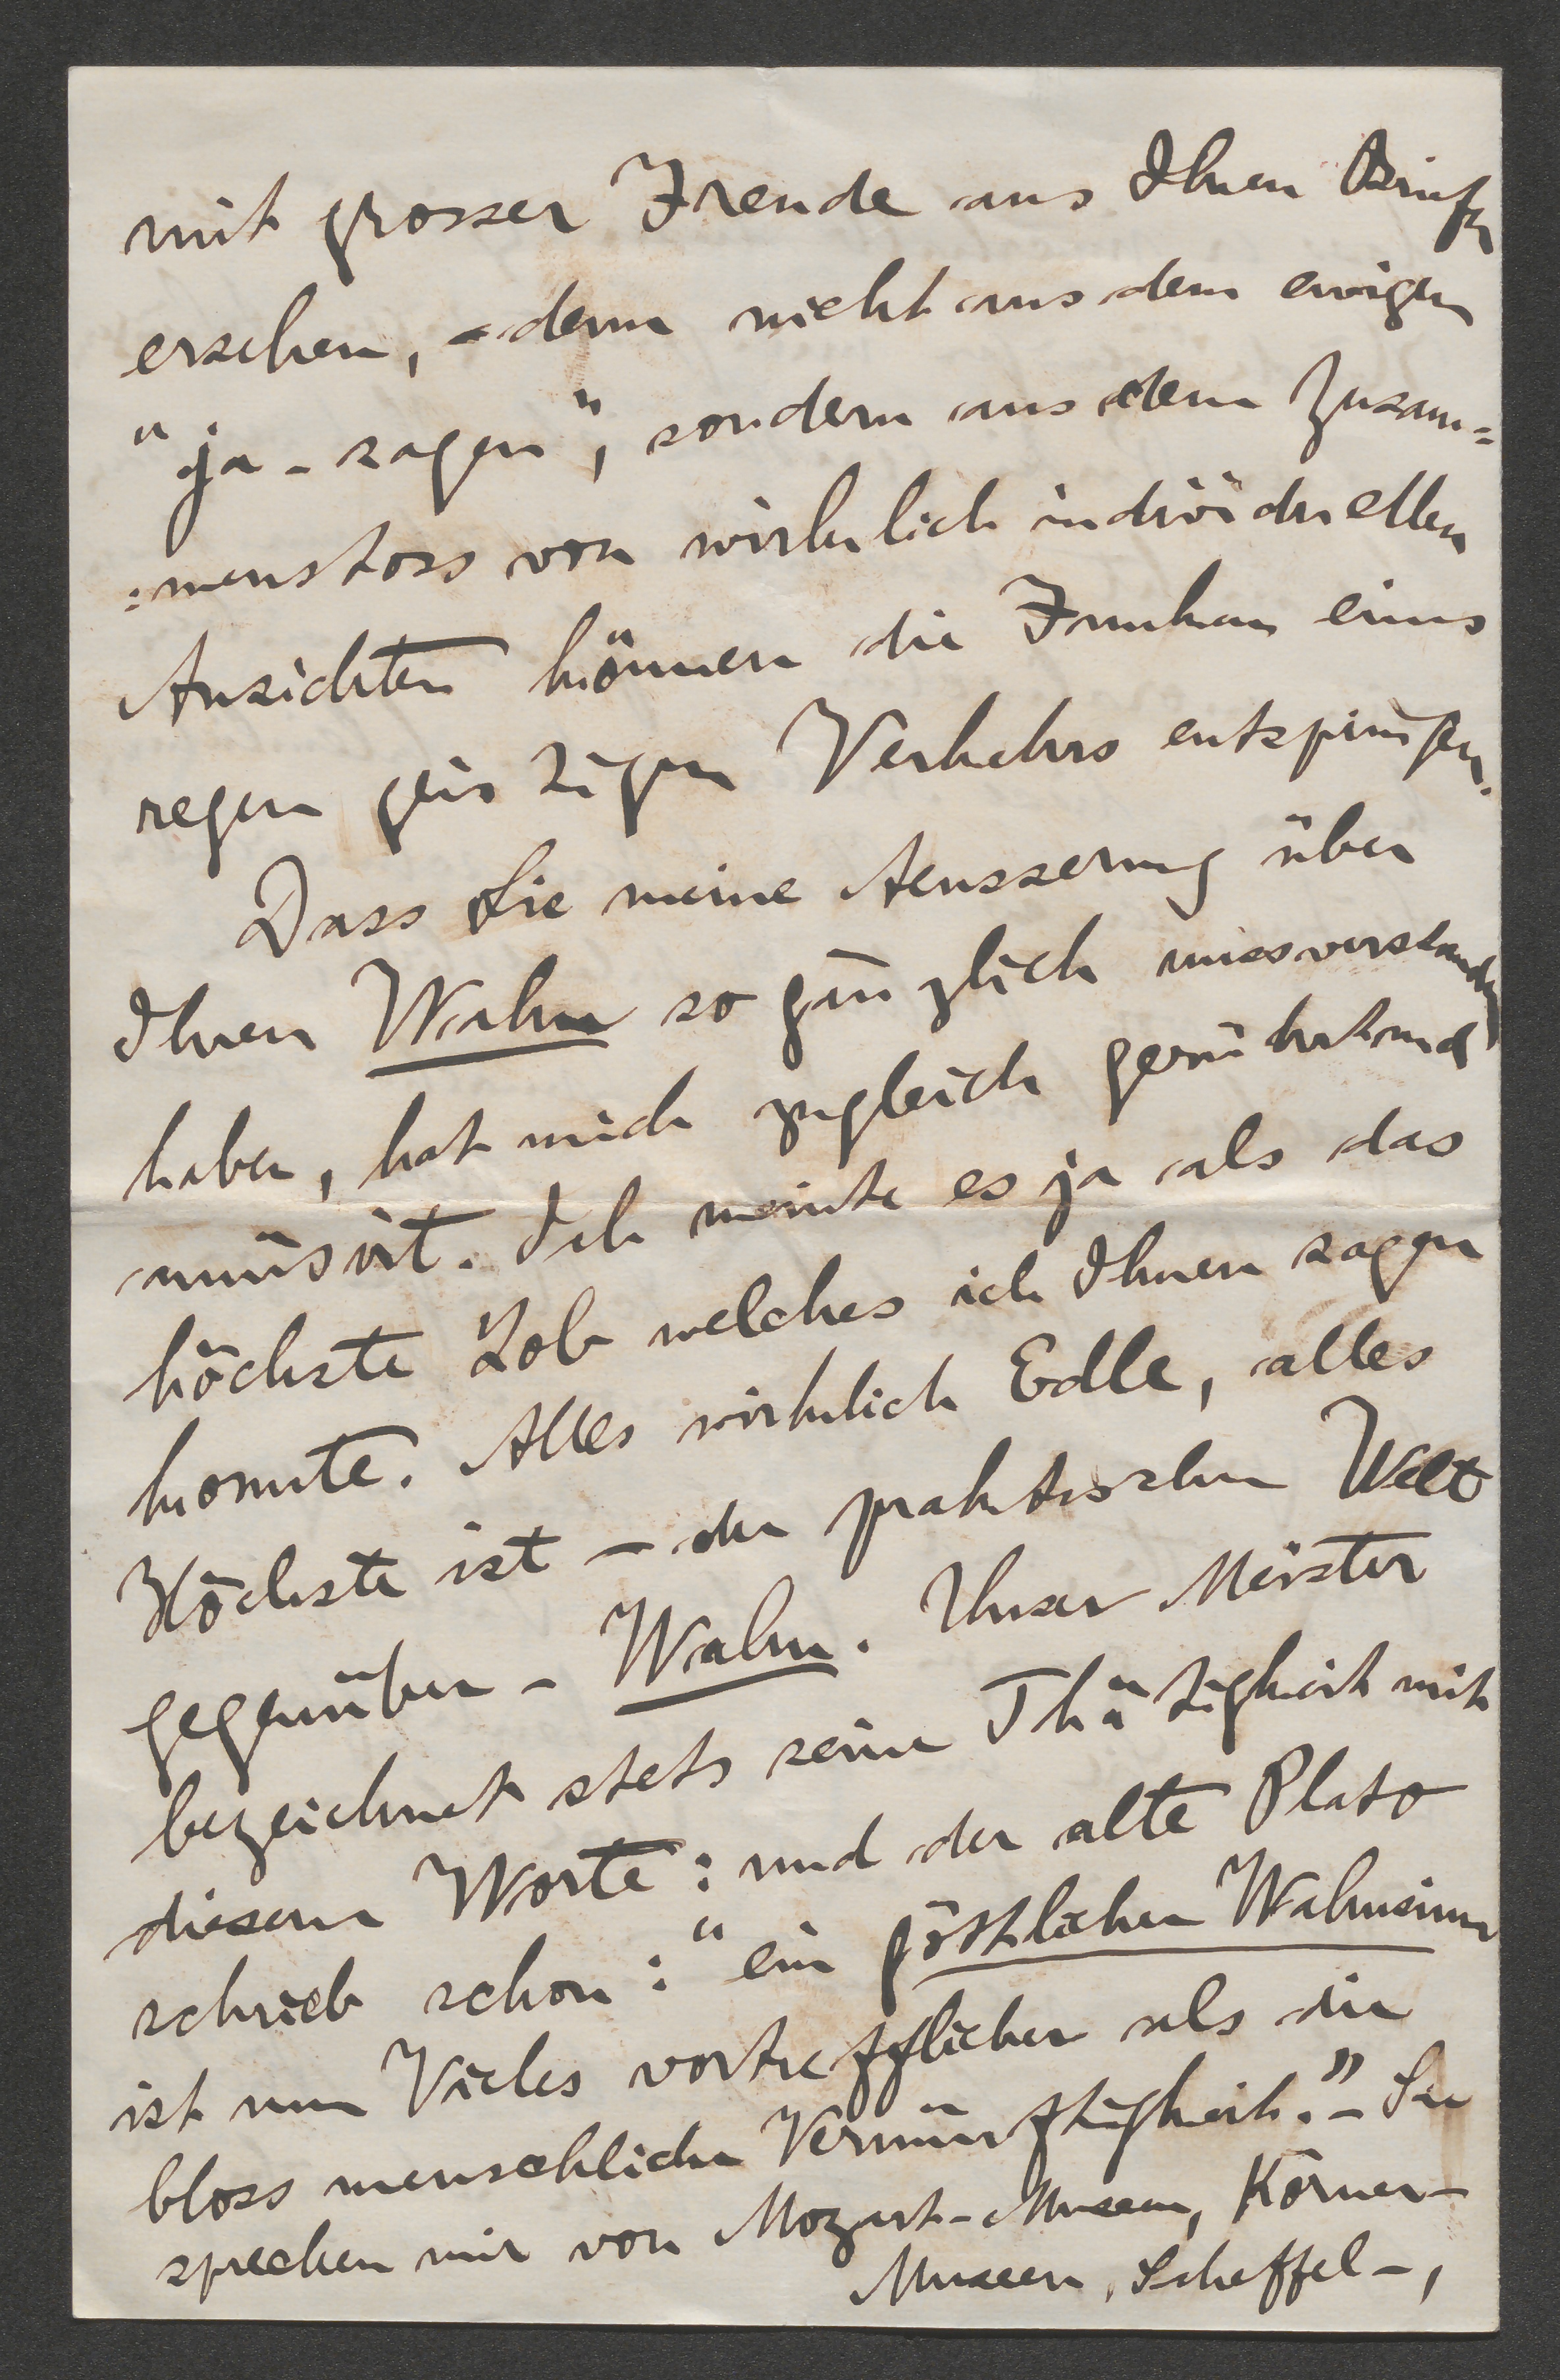 mit grosser Freude aus Ihrem Briefe
ersehen, - denn nicht aus dem ewigen
"ja - sagen", sondern aus dem Zusam=
=menstoss von wirklich individuellen
Ansichten können die Funken eines
regen geistigen Verkehrs entspringen.
Dass Sie meine Aeusserung über
Ihren Wahn so gänzlich missverstanden
haben, hat mich zugleich gerührt und
amüsirt. Ich meinte es ja als das
höchste Lob welches ich Ihnen sagen
konnte. Alles wirklich Edle, alles
Höchste ist - der praktischen Welt
gegenüber - Wahn. Unser Meister
bezeichnet stets seine Thätigkeit mit
diesem Worte: und der alte Plato
schrieb schon: "ein göttlicher Wahnsinn
ist um Vieles vortrefflicher als die
bloss menschliche Vernünftigkeit." - Sie
sprechen mir von Mozart-Museen, Körner-
Museen, Scheffel-,